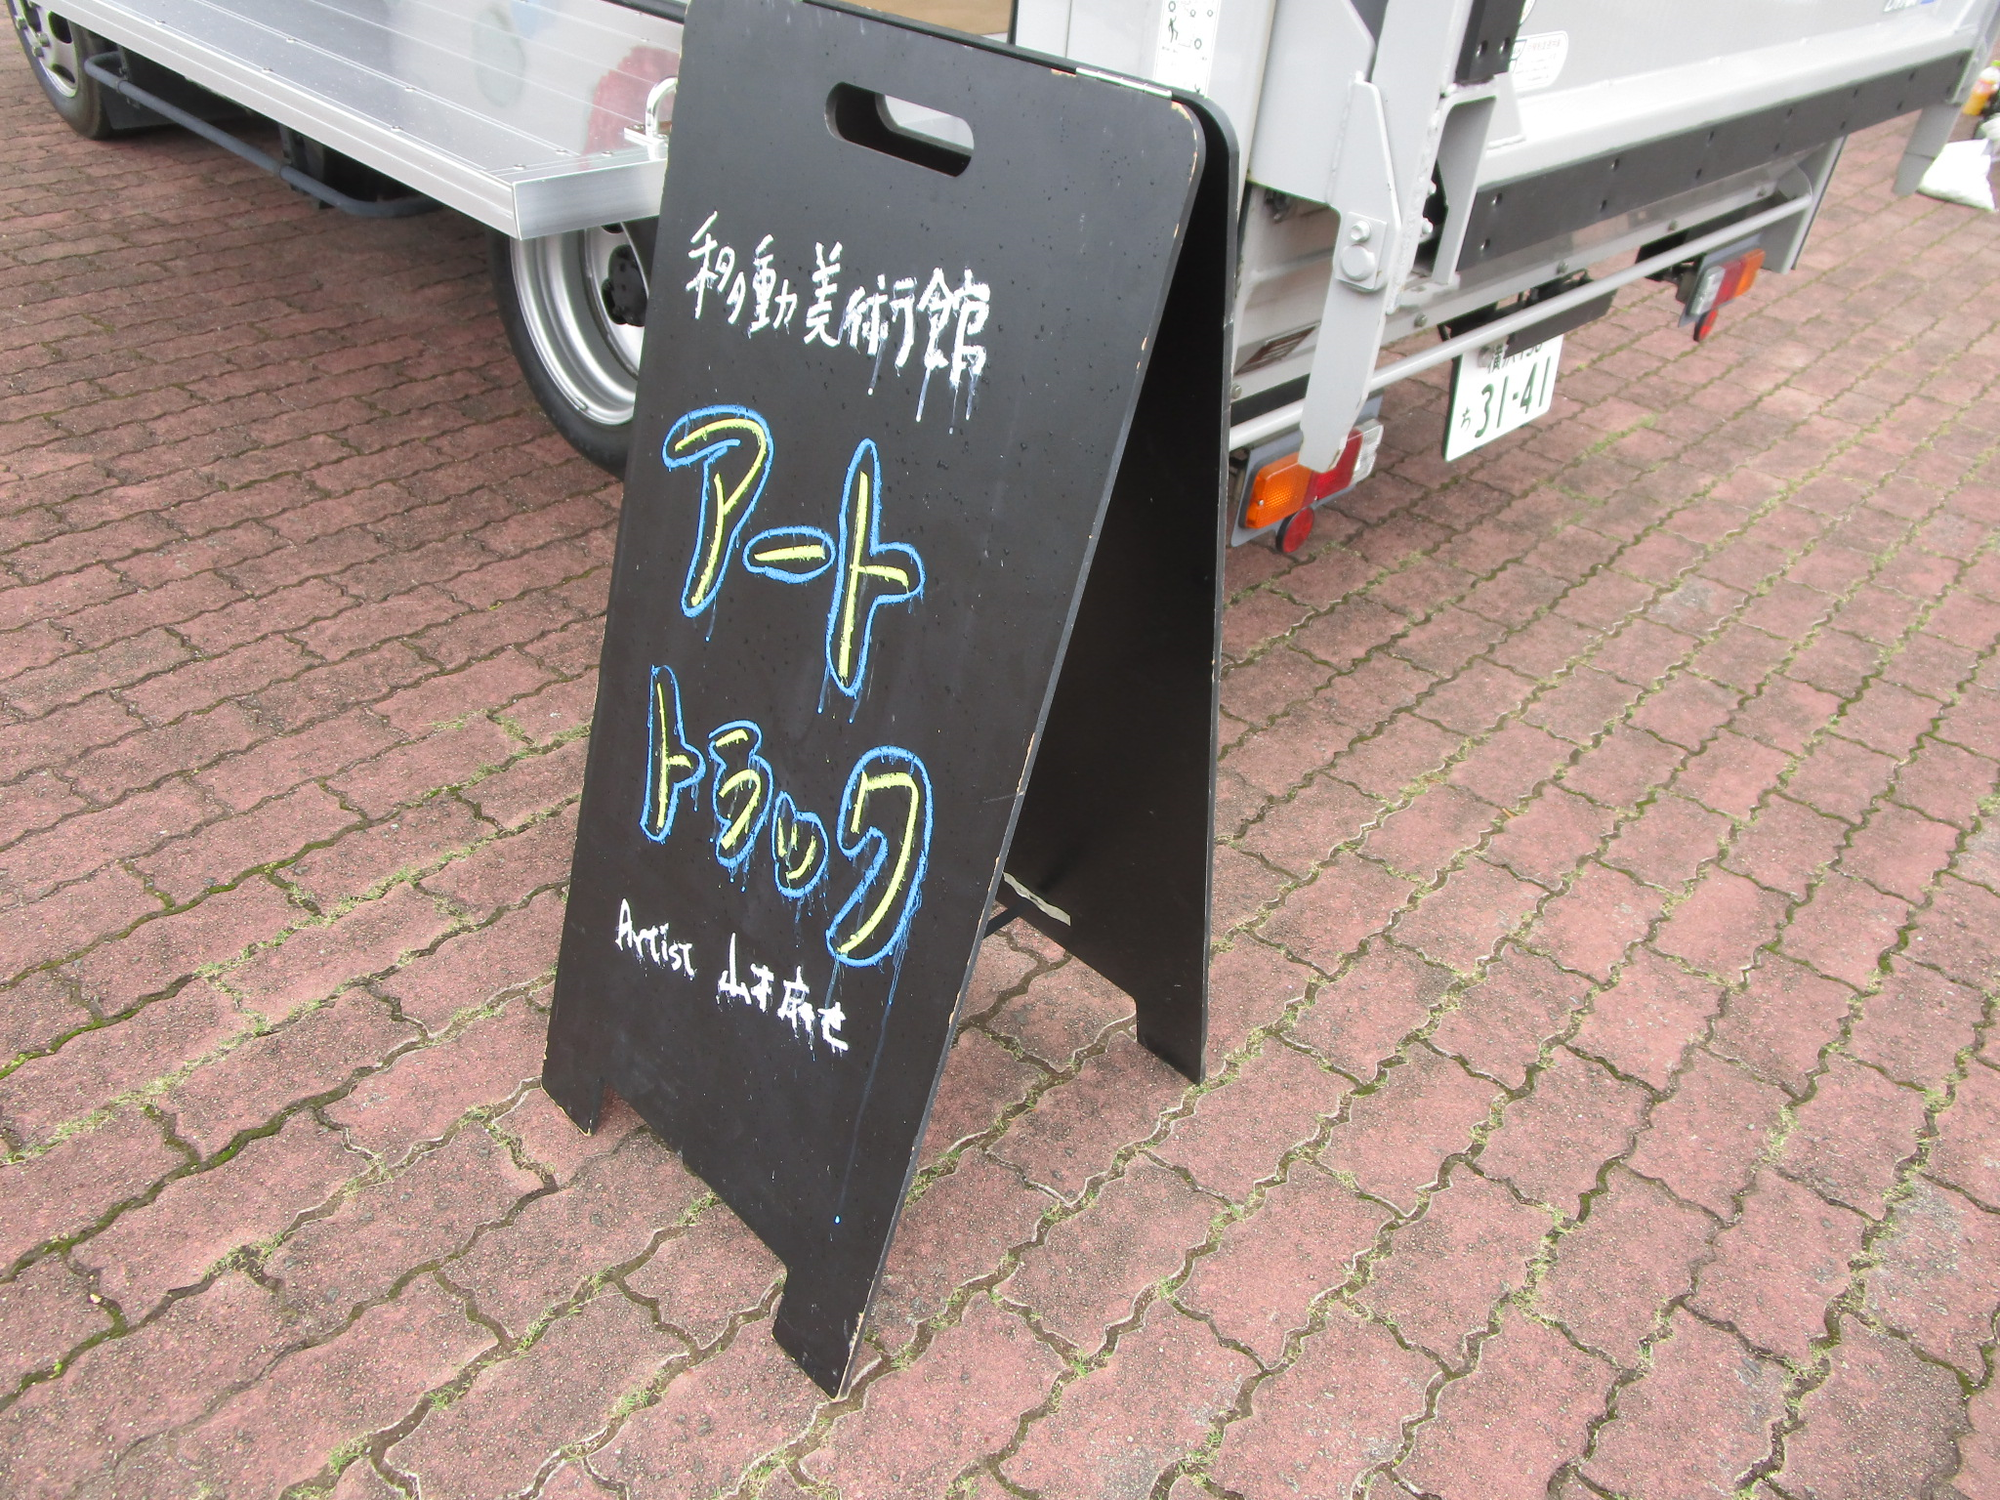 移動美術館
アート
トラック
Artist 山本麻世
ち 31-41